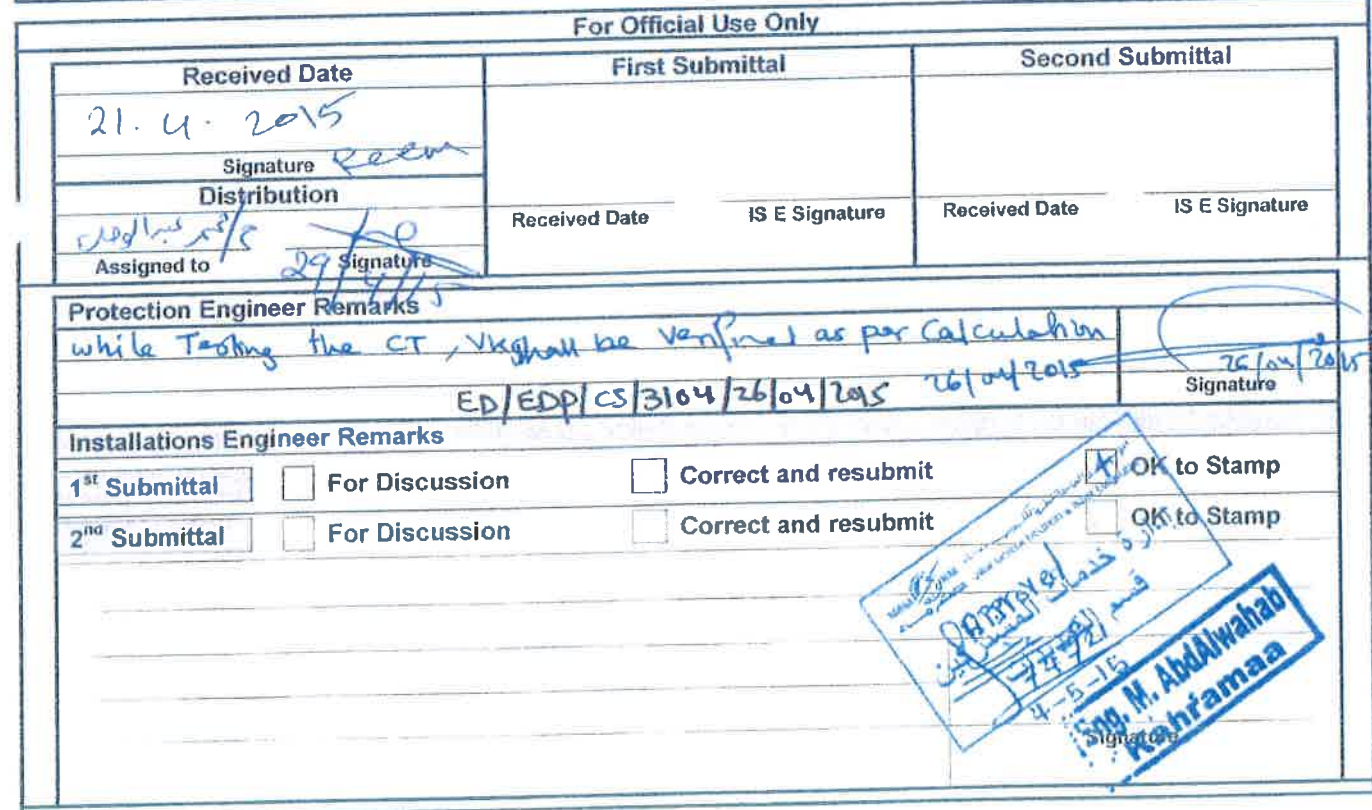 For Official Use Only
Received Date
21. 4. 2015
Signature Reem
Distribution
Assigned to
Signature
29/4/15
First Submittal
Received Date IS E Signature
Second Submittal
Received Date IS E Signature
Protection Engineer Remarks
while Testing the CT, Vk shall be Verified as per Calculation
ED/EDP/CS/3104/26/04/2015 26/04/2015
26/04/2015
Signature
Installations Engineer Remarks
1st Submittal For Discussion Correct and resubmit OK to Stamp
2nd Submittal For Discussion Correct and resubmit OK to Stamp
إدارة خدمات
قسم
4-5-15
Eng. M. AbdAlwahab
Kahramaa
Signature